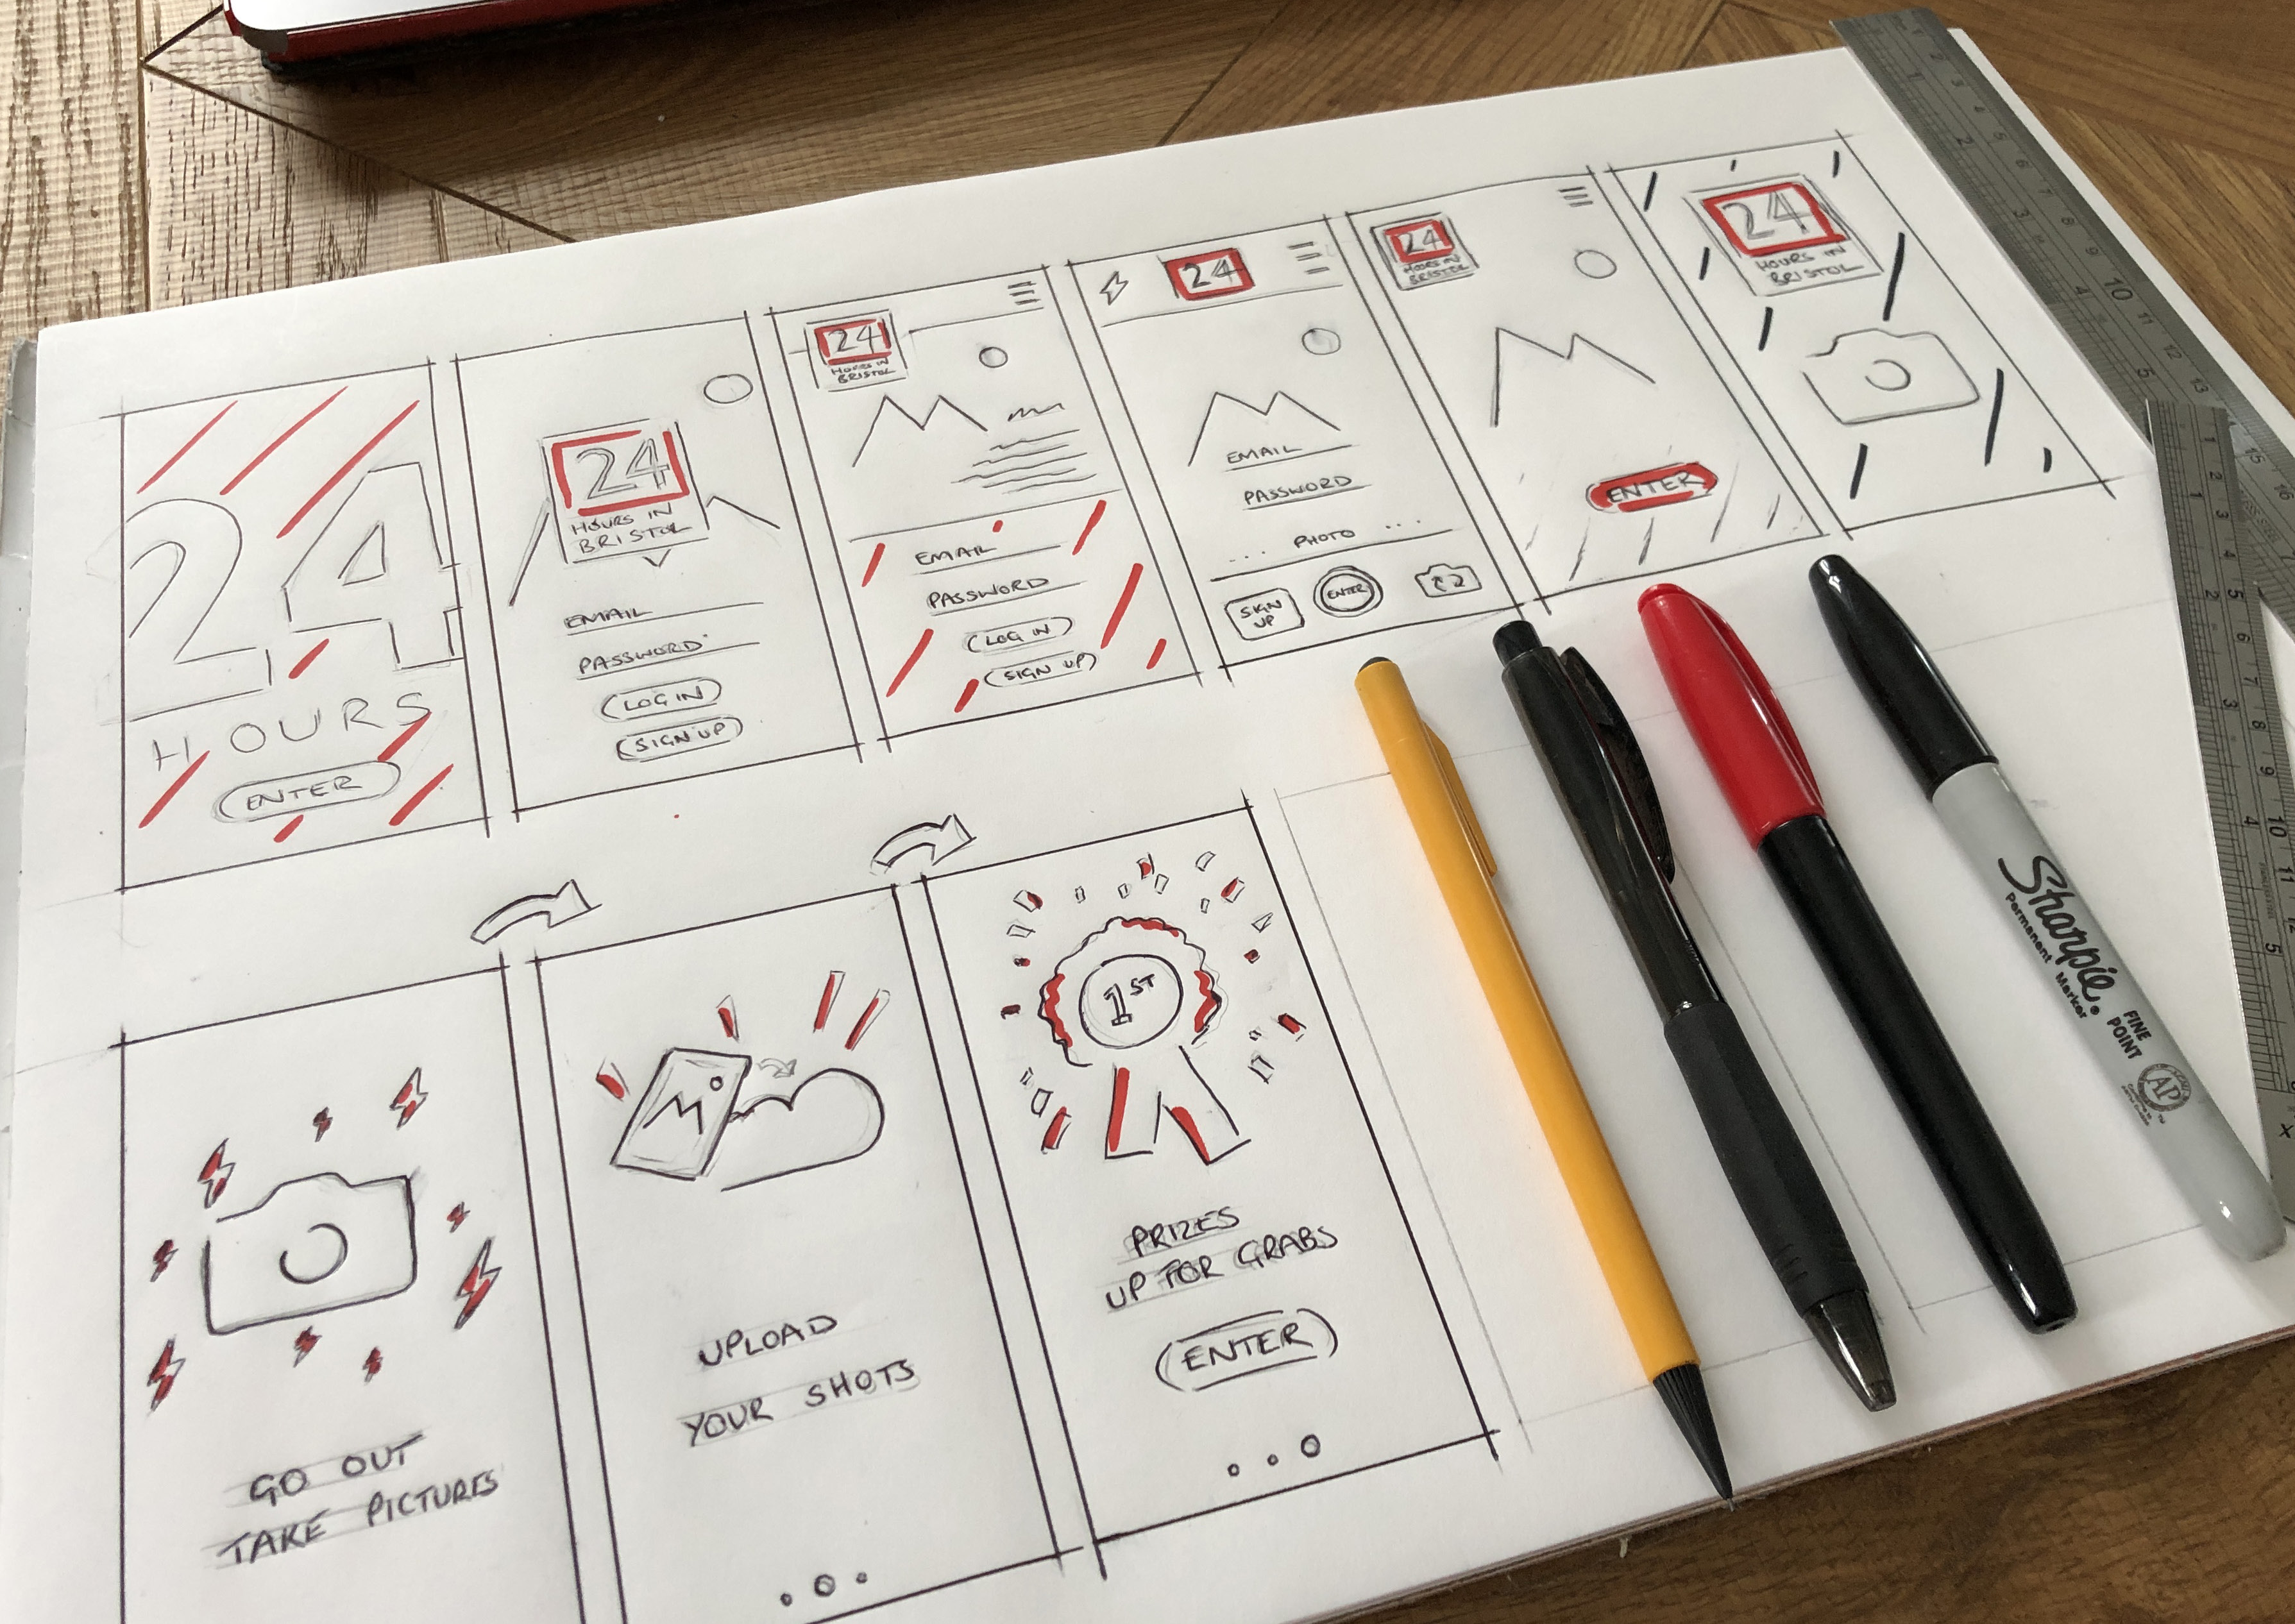 24
HOURS
ENTER
24
HOURS IN
BRISTOL
EMAIL
PASSWORD
LOG IN
SIGN UP
24
HOURS IN
BRISTOL
EMAIL
PASSWORD
LOG IN
SIGN UP
24
EMAIL
PASSWORD
PHOTO
SIGN
UP
ENTER
24
HOURS IN
BRISTOL
ENTER
24
HOURS IN
BRISTOL
GO OUT
TAKE PICTURES
UPLOAD
YOUR SHOTS
1ST
PRIZES
UP FOR GRABS
ENTER
Sharpie
Permanent Marker
FINE
POINT
AP